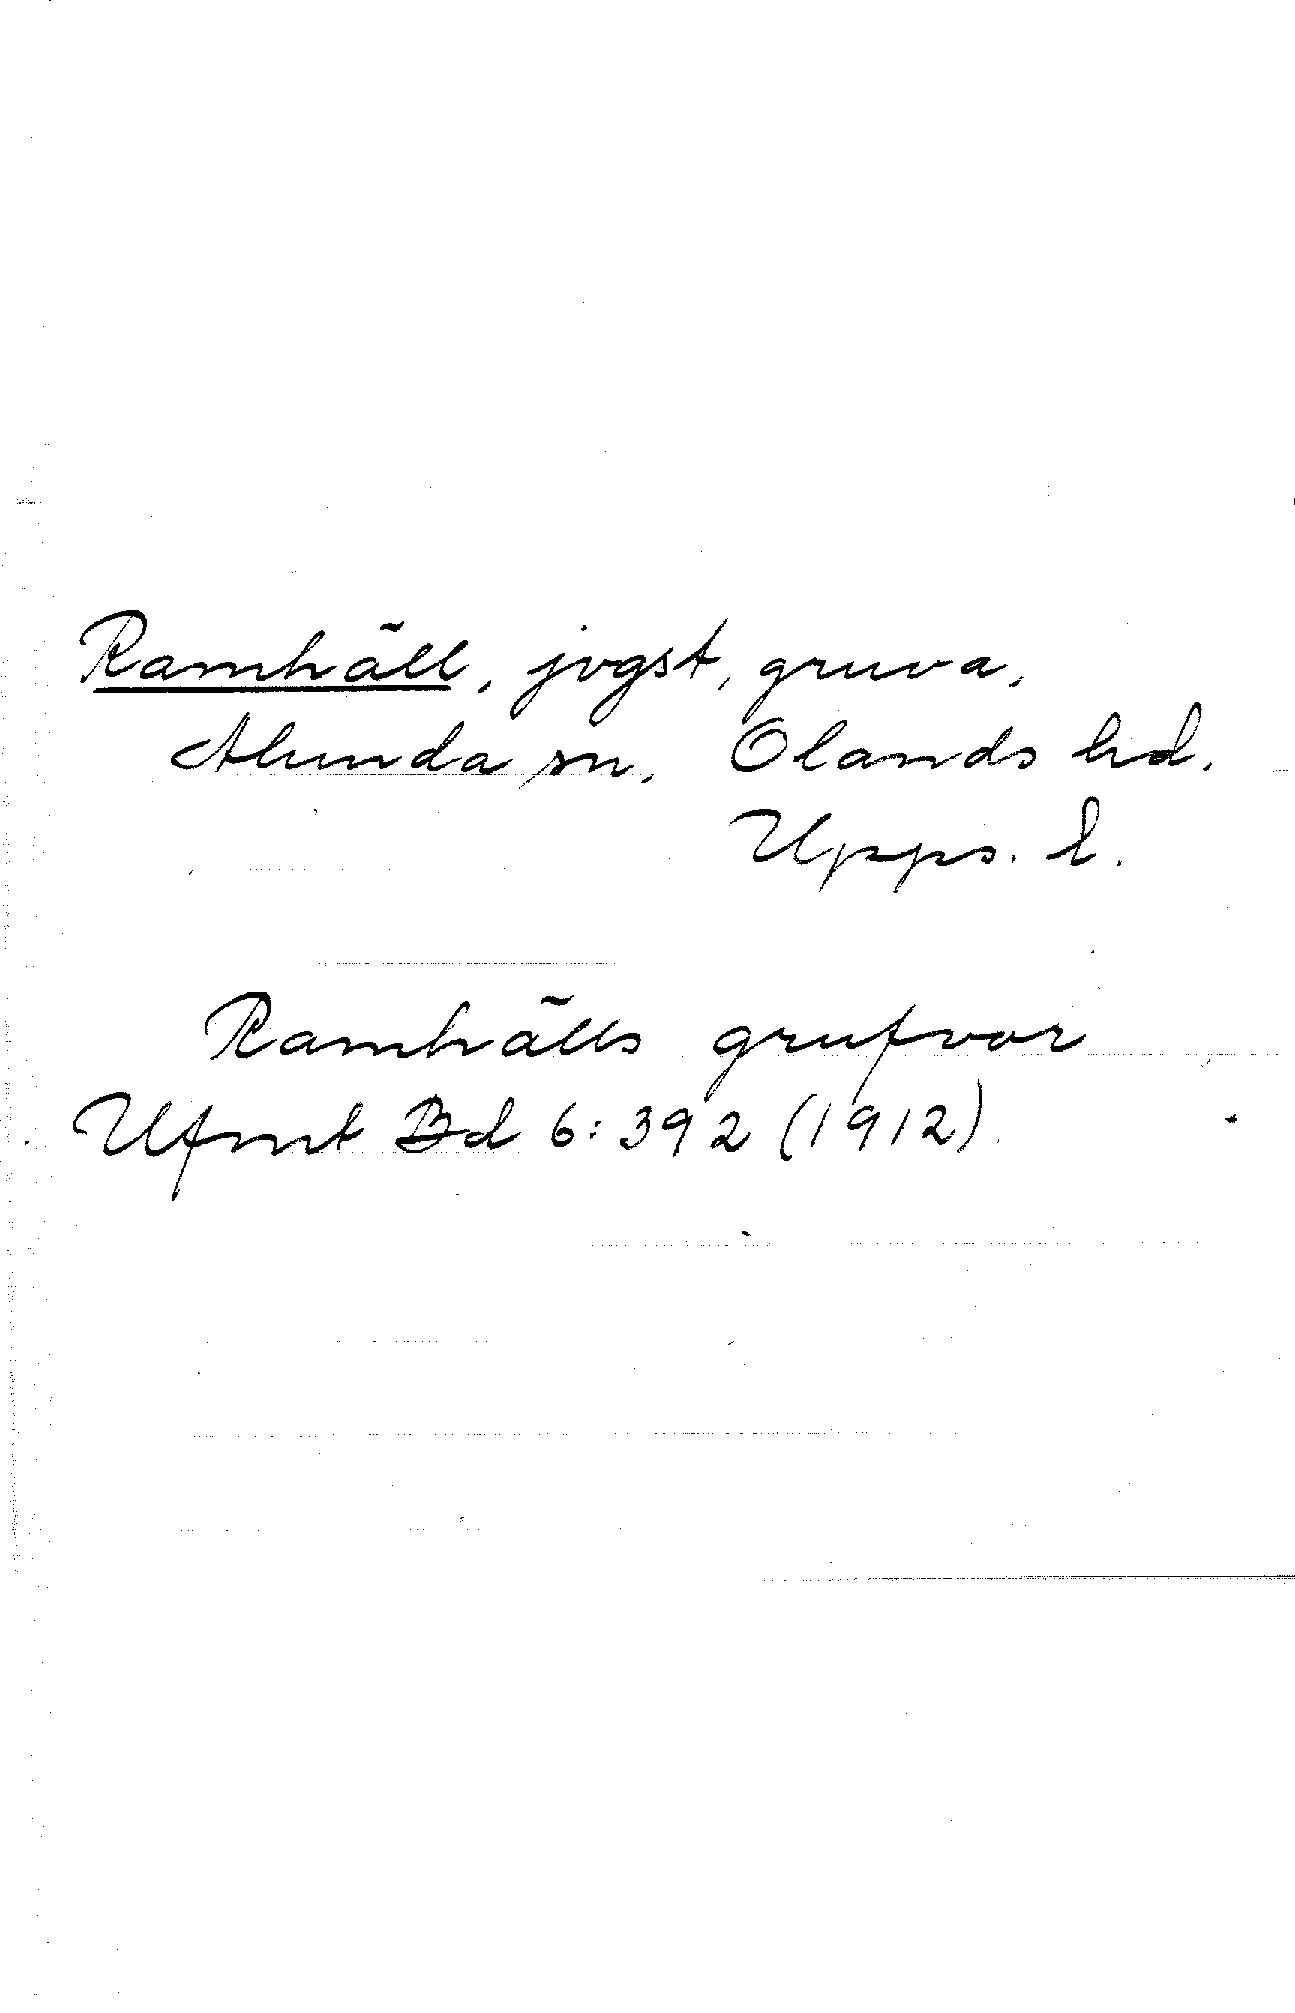 Ramhäll, jvgst, gruva,
Alunda sn. Olands hd.
Upps. l.
Ramhälls grufvor
Ufmt Bd 6:392 (1912)